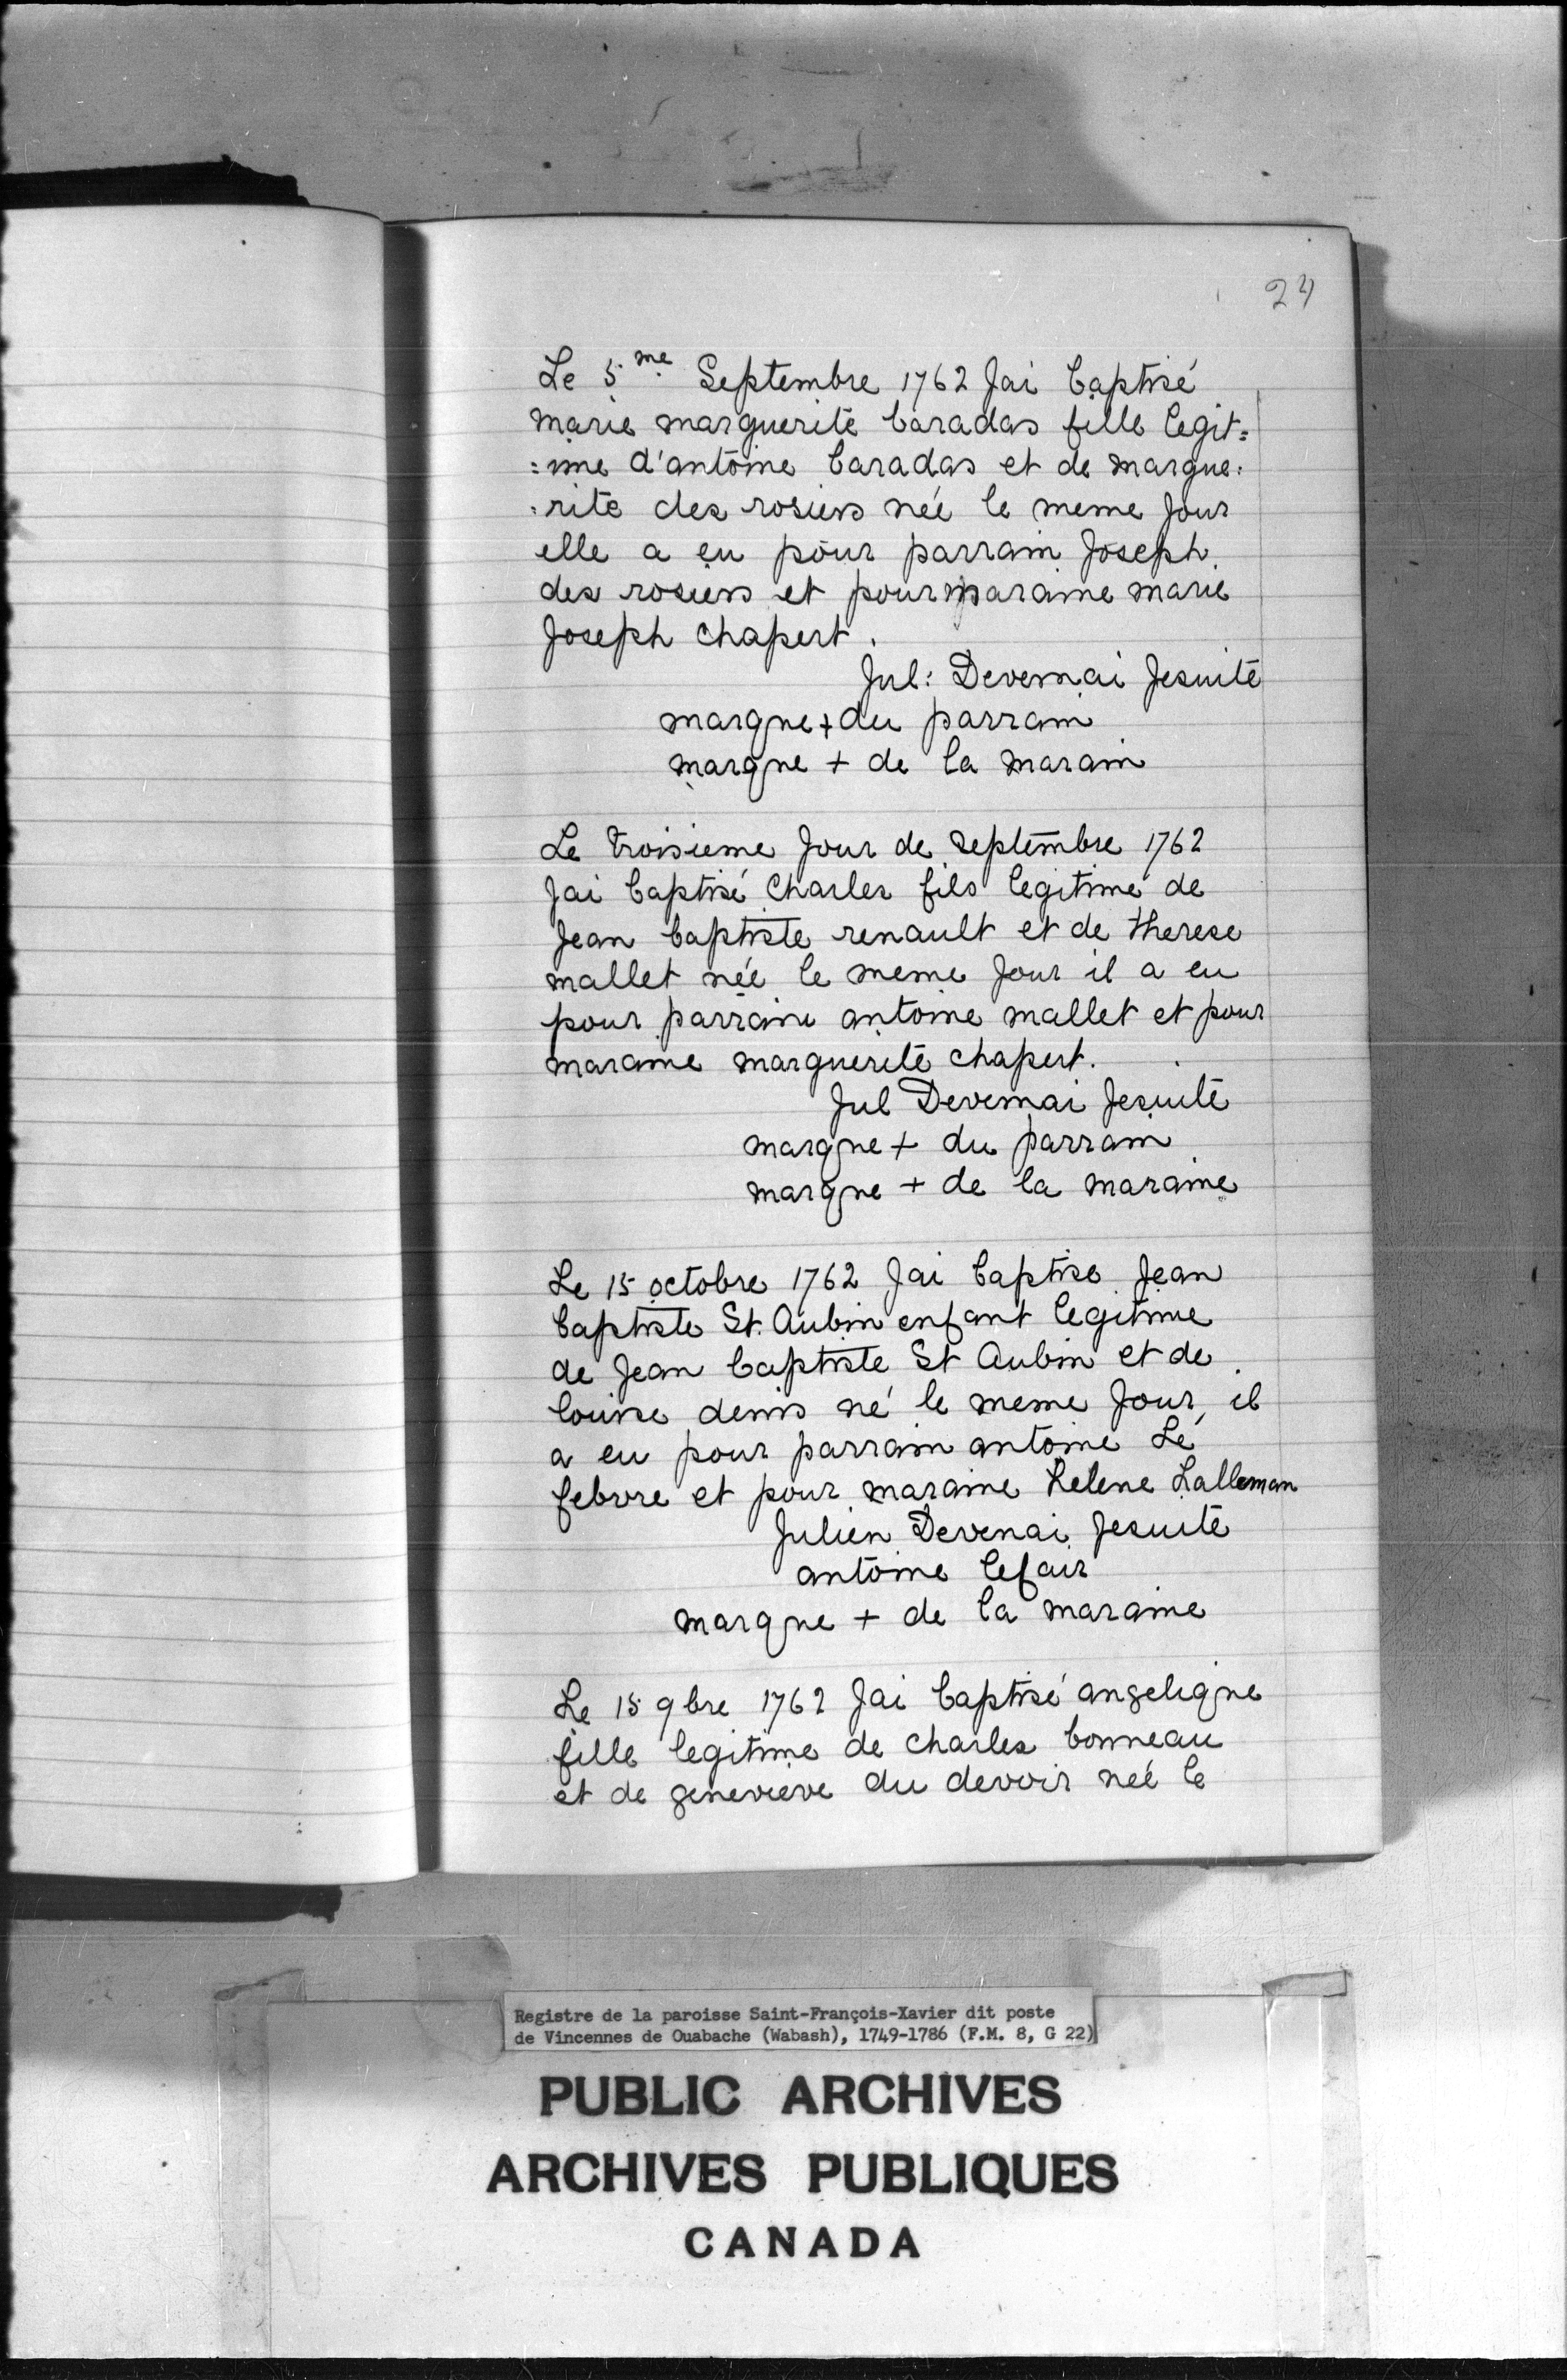 24
Le 5me Septembre 1762 Jai baptisé
marie marguerite baradas fille legit=
=ime d'antoine baradas et de margue:
:rite des rosiers née le meme Jour
elle a eu pour parrain Joseph
des rosiers et pour maraine marie
Joseph Chapert.
Jul: Devernai Jesuite
marque + du parrain
marque + de la marain
Le troisieme Jour de Septembre 1762
Jai baptisé Charles fils legitime de
Jean baptiste renault et de therese
mallet née le meme Jour il a eu
pour parraine antoine mallet et pour
maraine marguerite chapert.
Jul Devernai Jesuite
marque + du parrain
marque + de la maraine
Le 15 octobre 1762 Jai baptise Jean
baptiste St. Aubin enfant legitime
de Jean baptiste St Aubin et de
louise denis né le meme Jour, il
a eu pour parrain antoine Le
febvre et pour maraine helene Lalleman
Julien Devenai Jesuite
antoine lefair
marque + de la maraine
Le 15 9bre 1762 Jai baptisé angelique
fille legitime de Charles bonneau
et de genevieve du devoir née le
Registre de la paroisse Saint-François-Xavier dit poste
de Vincennes de Ouabache (Wabash), 1749-1786 (F.M. 8, G 22)
PUBLIC ARCHIVES
ARCHIVES PUBLIQUES
CANADA